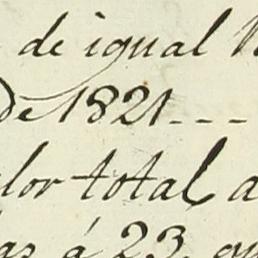 de igual
de 1821 - - -
lor total a
as á 23